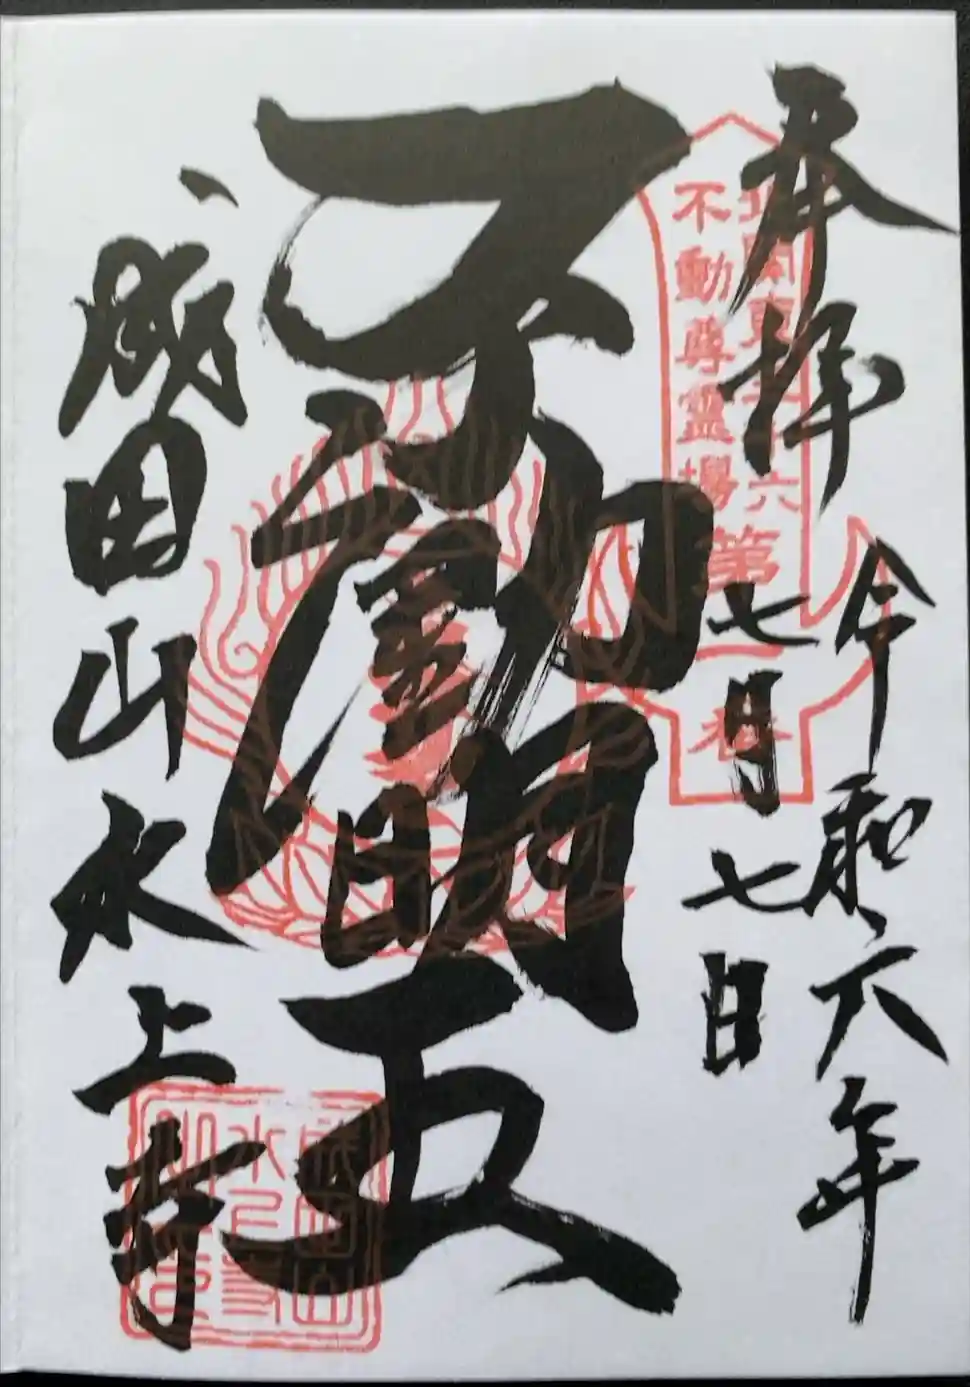 奉拝
令和六年
七月七日
北関東三十六
不動尊靈場
第一番
不動明王
成田山水上寺
成田山
水上寺